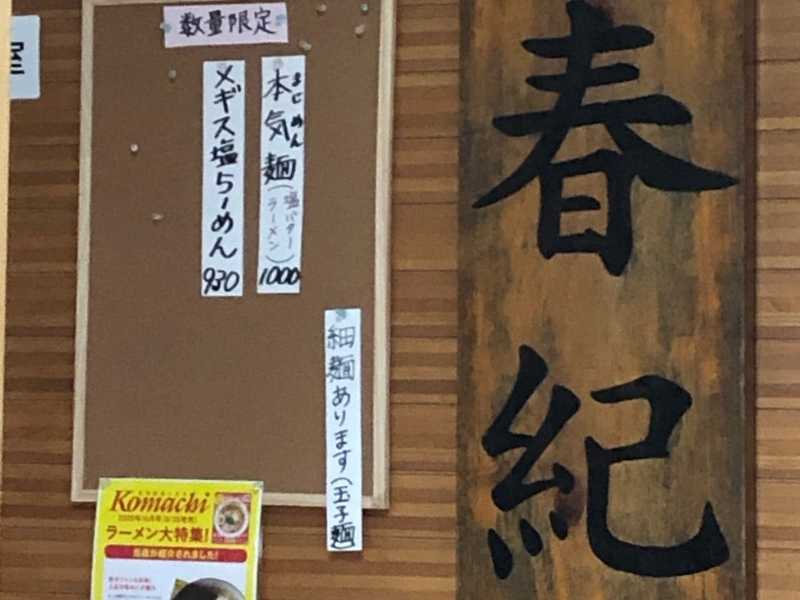 室
数量限定
まじめん
本気麺(塩バターラーメン)1000
メギス塩らーめん930
細麺あります(玉子麺)
春紀
Komachi
ラーメン大特集!
当店が紹介されました!